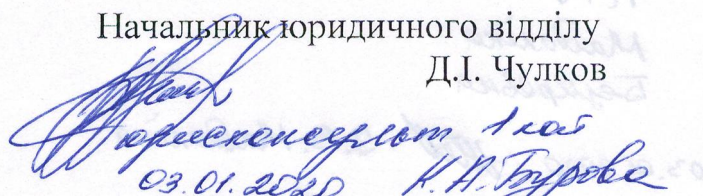 Начальник юридичного відділу
Д.І. Чулков
юрисконсульт 1 кат
03.01.2020 К.А. Бурова